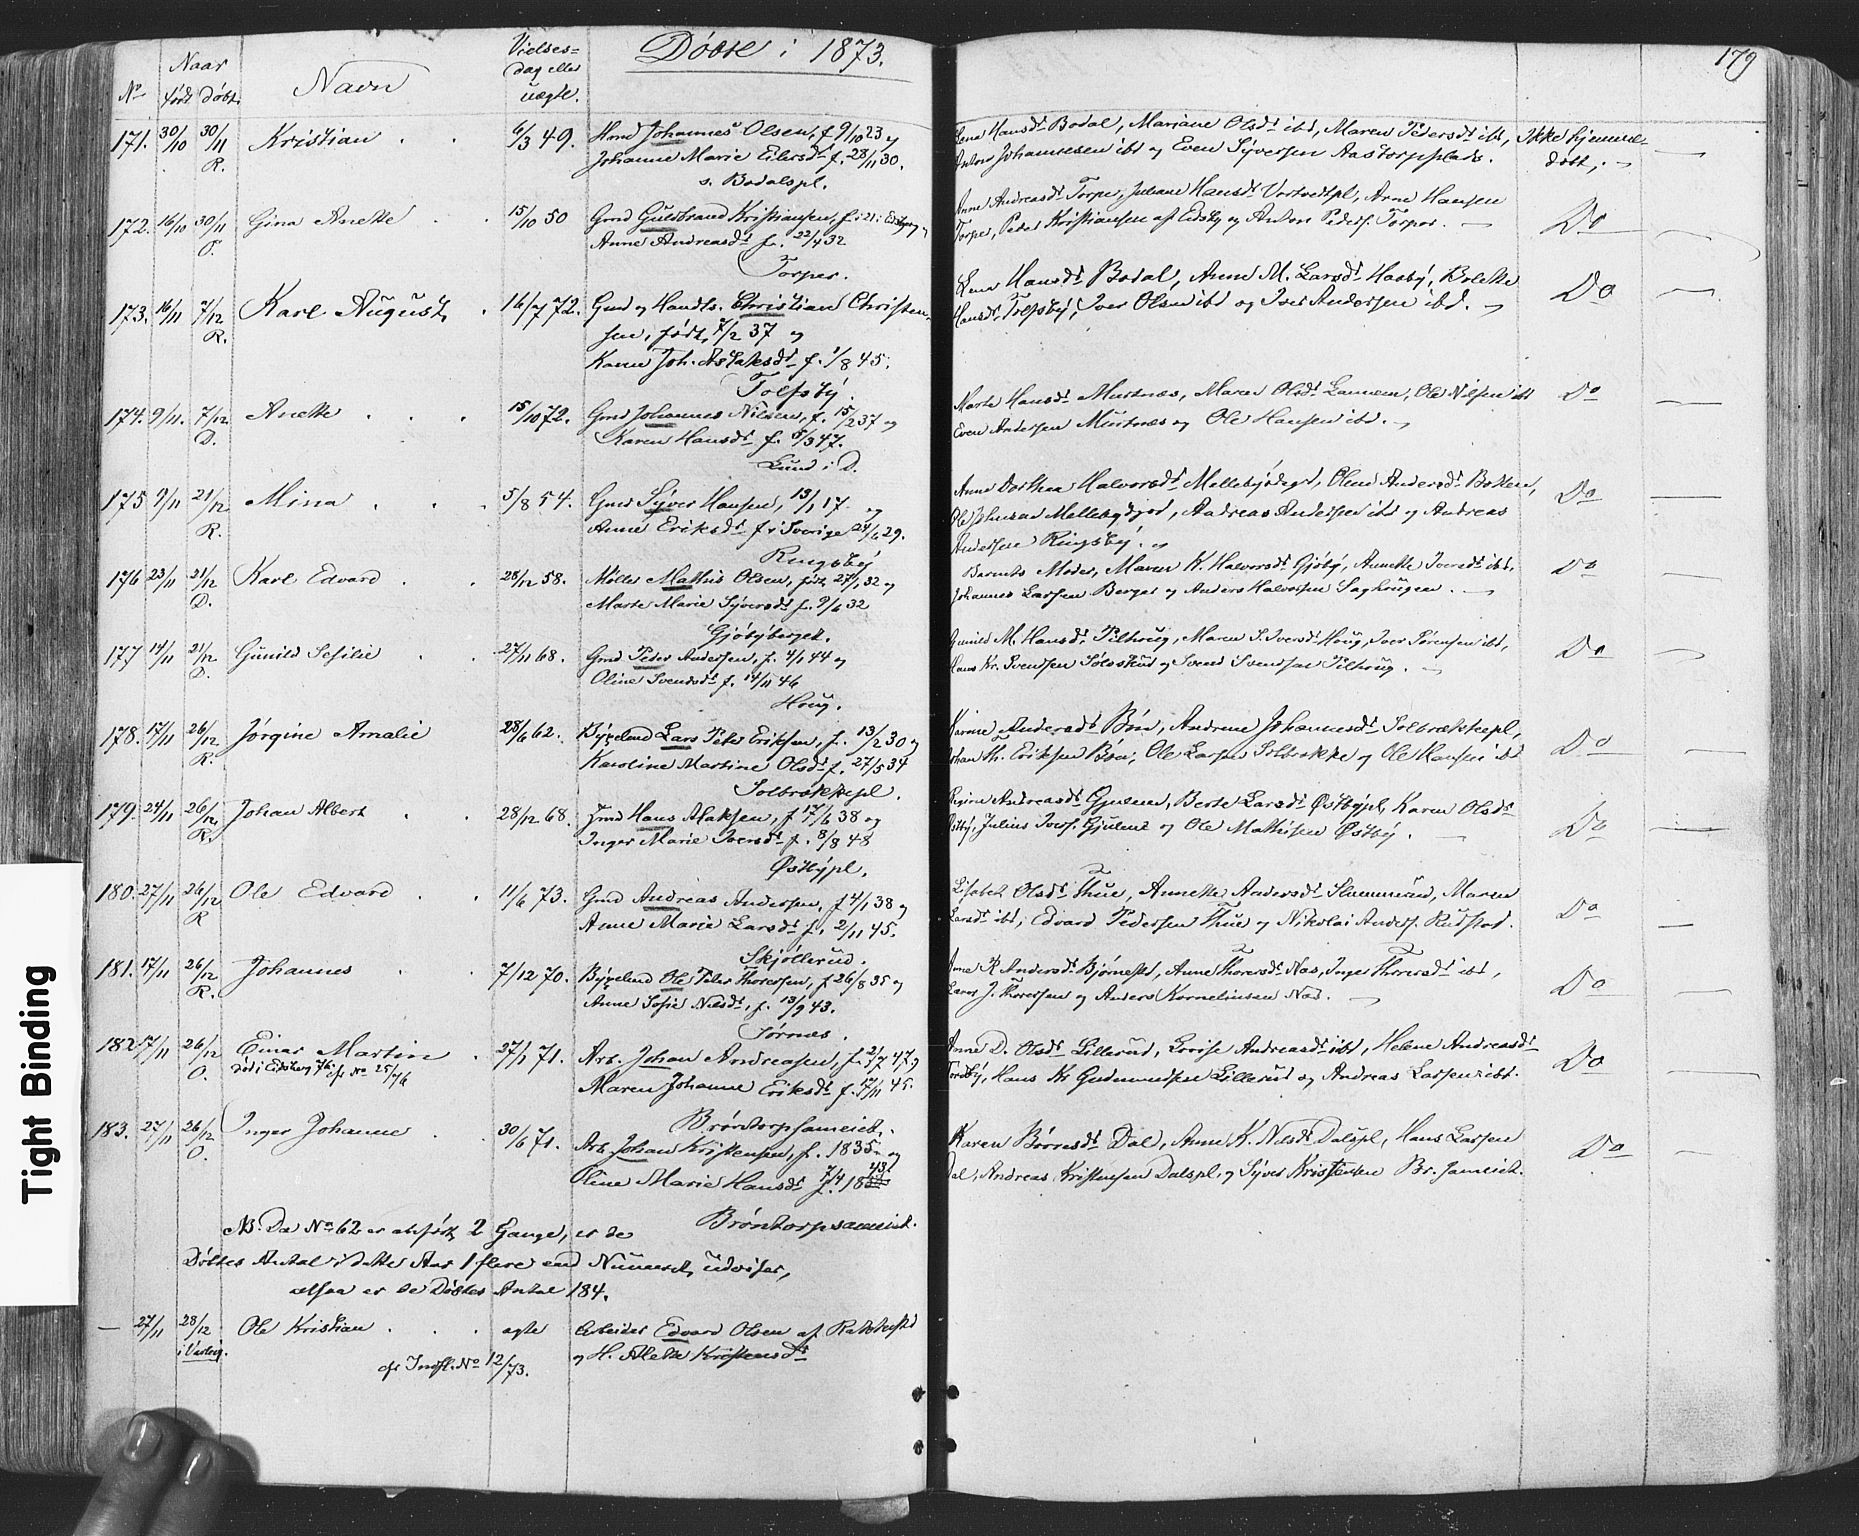 Døbte i 1873.
179
No
Naar
født
døbt.
Navn
Vielses=
dag eller
uægte.
171. 30/10 30/11 Kristian 6/3 49. Johannes Olsen, f. 9/10 23 og
R. Johanne Marie Eilersdt f. 28/11 30.
s. Bodalspl.
Lena Hansdt Bodal, Mariane Olsdt ibd, Maren Pedersdt ibd, Ikke hjemme-
Anton Johannesen ibd og Even Syversen Aastorpplads. døbt,
172. 16/10 30/11 Gina Anette 15/10 50 Gmd Guldbrand Kristiansen, f. i 21 i Edsberg og
Anne Andreasdt f. 22/4 32
Torper.
Anne Andreasdt Torper, Juliane Hansdt Arne Hansen
Torper, Peder Kristiansen af Edsby og Anton Peders. Torper. Do
173. 16/11 7/12 Karl August 16/7 72. Gmd og Handls. Christian Christen-
R. sen, født 7/2 37 og
Karen Joh. Aslaksdt f. 1/8 45.
Tolfsby.
Lena Hansdt Bodal, Anne M. Larsdt Haaby, Bolette
Hansdt Tolfsby, Iver Olsen ibd og Iver Andersen ibd. Do
174. 9/11. 7/12 Anette 15/10 72. Gmd Johannes Nilsen, f. 15/2 37 og
D. Karen Hansdt f. 5/3 47.
Lund i D.
Marte Hansdt Murtnæs, Maren Olsdt Ole Nilsen ibd
Even Andersen Murtnæs og Ole Hansen ibd. Do
175 9/11 21/12 Mina 5/8 54. Gmd Syver Hansen, 13/1 17 og
R. Anne Eriksdt f. i Sverige 24/6 29.
Ringsby
Anne Dorthea Halvorsdt Mellebydegd, Oline Andersdt Botten,
Ole Johnsen Mellebydgd, Andreas Andersen ibd og Andreas
Andersen Ringsby. Do
176 23/11 21/12 Karl Edvard 28/12 58. Møller Mathis Olsen, født 27/1 32 og
D. Marte Marie Syversdt f. 9/6 32
Gjøbyberget.
Barnets Moder, Maren K. Halvorsdt Gjøby, Annette Iversdt ibd,
Johannes Larsen Berger og Anders Halvorsen Saghaugen. Do
177 14/11 21/12 Gunild Sesilie 27/11 68. Gmd Peder Andersen, f. 4/1 44 og
D. Oline Svendsdt f. 14/11 46
Houg.
Gunild M. Hansdt Tilhaug, Maren S. Iversdt Houg, Iver Sørensen ibd,
Hans Kr. Svendsen og Svend Svendsen Tilhaug. Do
178. 17/11 26/12 Jørgine Amalie 28/6 62. Bygselmd Lars Peter Eriksen, f. 13/2 30 og
R. Karoline Martine Olsdt f. 27/5 34
Solbrækkepl.
Karine Andersdt Bøn, Andrine Johannesdt Solbrækkepl,
Johan Th. Eriksen Bøn, Ole Larsen Solbrække og Ole Hansen ibd Do
179. 24/11 26/12 Johan Albert 28/12 68. Hans Alaksen, f 17/6 38 og
R. Inger Marie Iversdt f. 8/8 48
Østbypl.
Andreasdt Gjulem, Berte Larsdt Østbypl, Karen Olsdt
Østby, Julius Ivers. Gjulem og Ole Mathisen Østby. Do
180. 27/11 26/12 Ole Edvard 11/6 73. Gmd Andreas Andersen, f 4/1 38 og
R Anne Marie Larsdt f. 2/11 45.
Skjøllerud.
Lisabet Olsdt Thue, Annette Andersdt Maren
Larsdt ibd, Edvard Pedersen Thue og Nikolai Anders. Rudstad. Do
181. 17/11 26/12 Johannes 7/12 70. Bygselmd Ole Peter Thoresen, f 26/8 35 og
R. Anne Sofie Nilsdt, f. 13/9 43.
Tørnæs.
Anne R. Andersdt Anne Thoresdt Næs, Inger Thoresdt ibd,
Lars J. Thoresen og Anders Kornelinsen Næs. Do
182 17/11 26/12 Einar Martin 27/1 71. Arb. Johan Andreasen, f. 2/7 47 og
O. Død i Eidsberg 76. cfr No 25/76 Maren Johanne Eriksdt f. 17/11 45.
Brøntorpsameiet.
Anne D. Olsdt Lillerud, Lovise Andreasdt ibd, Helene Andreasdt
Tordby, Hans Kr Gudmundsen Lillerud og Andreas Larsen ibd. Do
183. 27/11 26/12 Inger Johanne 30/6 71. Arb. Johan Kristensen, f. 1835 og
O. Oline Marie Hansdt f. 7/4 1843
Brøntorpsameiet.
Karen Børresdt Dal, Anne K. Nilsdt Dalspl, Hans Larsen
Dal, Andreas Kristensen Dalspl. og Syver Kristensen Br. sameiet. Do
NB. Da No 62 er anført 2 Gange, er de
Døbtes Antal i dette Aar 1 flere end Numeret udviser,
altsaa er de Døbtes Antal 184.
— 27/11 28/12 Ole Kristian ægte Arbeider Edvard Olsen af Rakkestad
i Varteig. og H. Alette Kristensdt
cfr Indfl. No 12/73.
Tight Binding